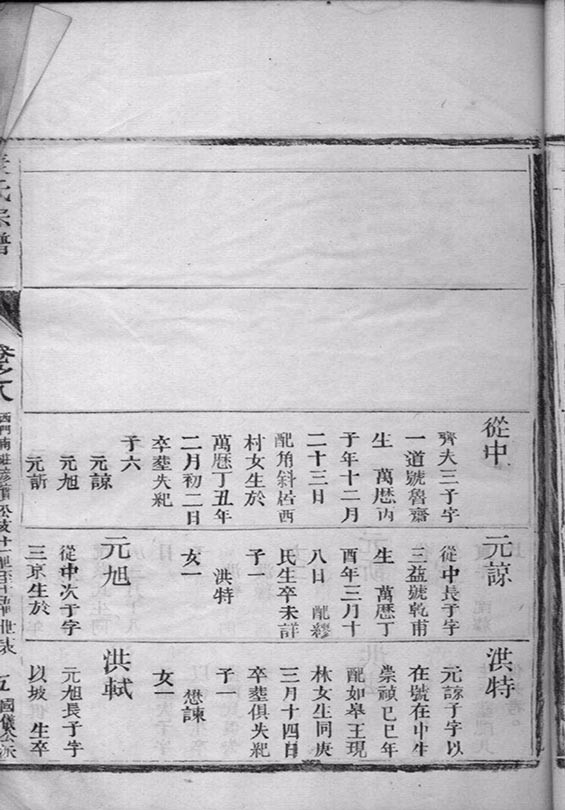 從中
齊夫三子字
一道號魯齋
生　萬曆丙
子年十二月
二十三日
配角斜𡊮西
村女生於
萬曆丁丑年
二月初二日
卒塟失紀
子六
元諒
元旭
元訢
元諒
從中長子字
三益號乾甫
生　萬曆丁
酉年三月十
八日　配繆
氏生卒未詳
子一
洪特
女一
元旭
從中次子字
三京生於
洪特
元諒子字以
在號在中生
崇禎己巳年
配如皋王現
林女生同庚
三月十四日
卒塟俱失紀
子一
懋諫
女一
洪軾
元旭長子字
以坡　生卒
氏宗譜
卷之八
西門
世表
五
國儀公派